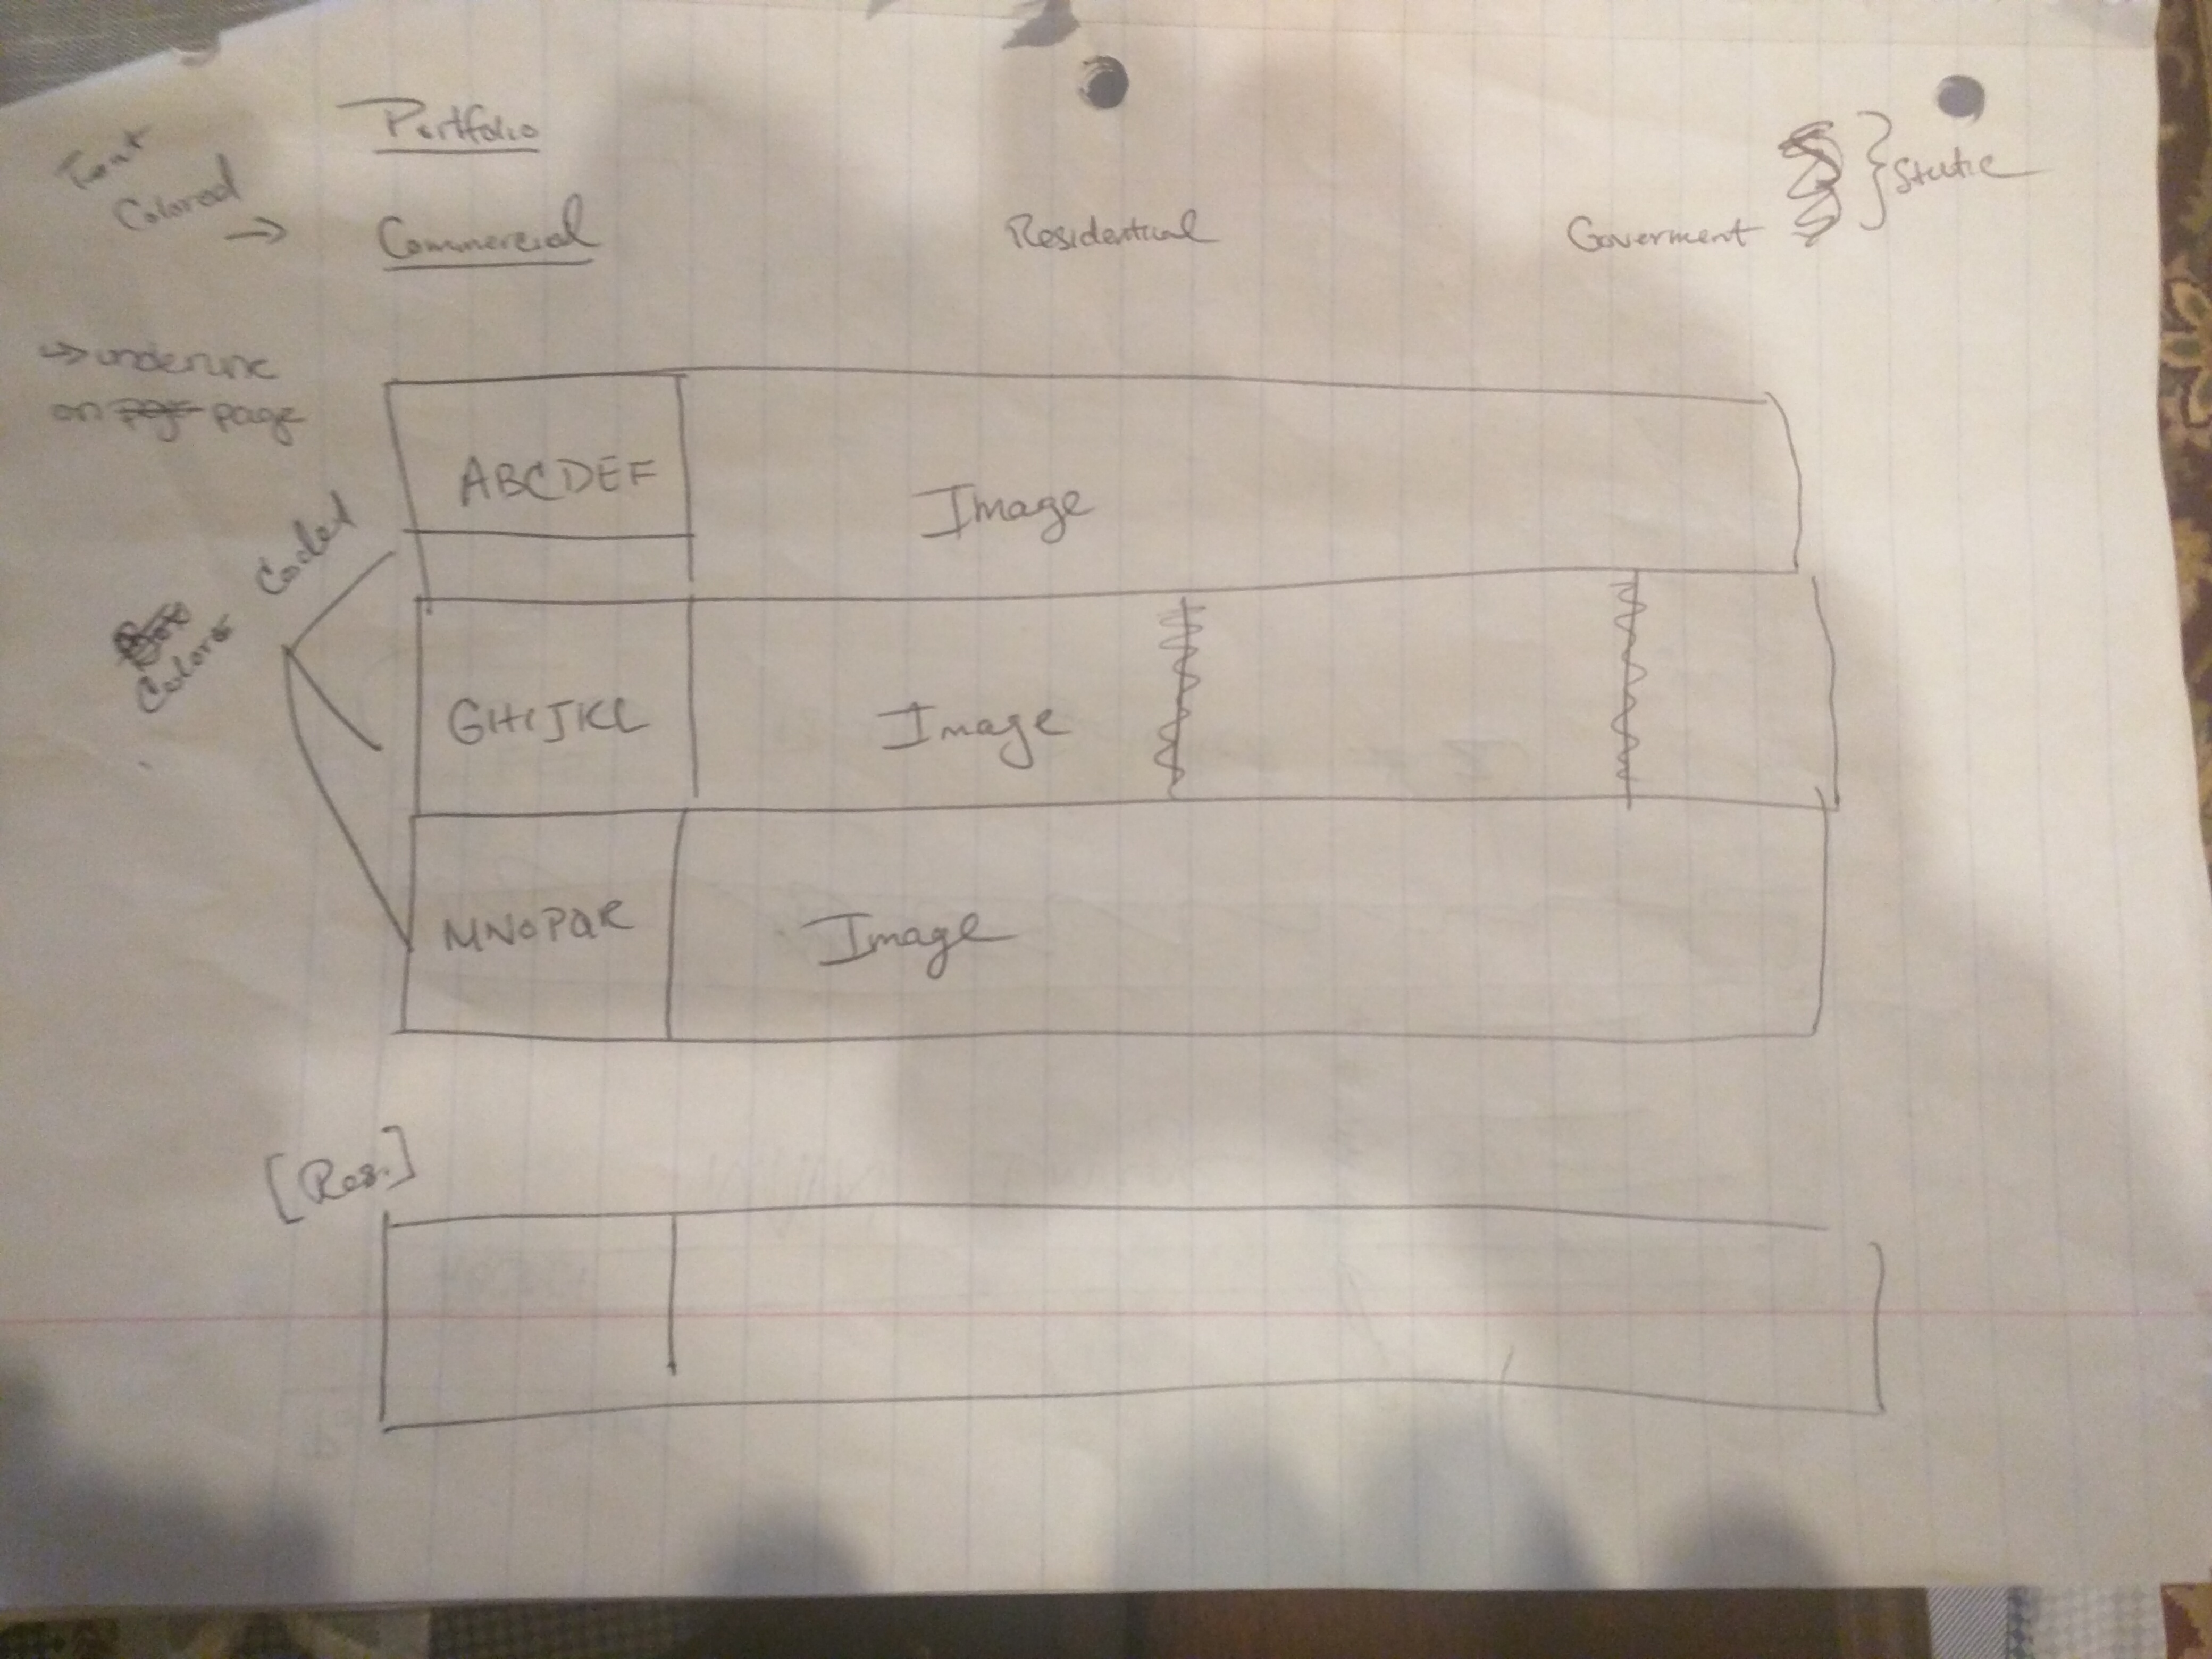 Portfolio
Font
Colored →
Commercial Residential Goverment } Static
→ underline
on page
ABCDEF Image
Coded
Colors
GHIJKL Image
MNOPQR Image
[Res.]